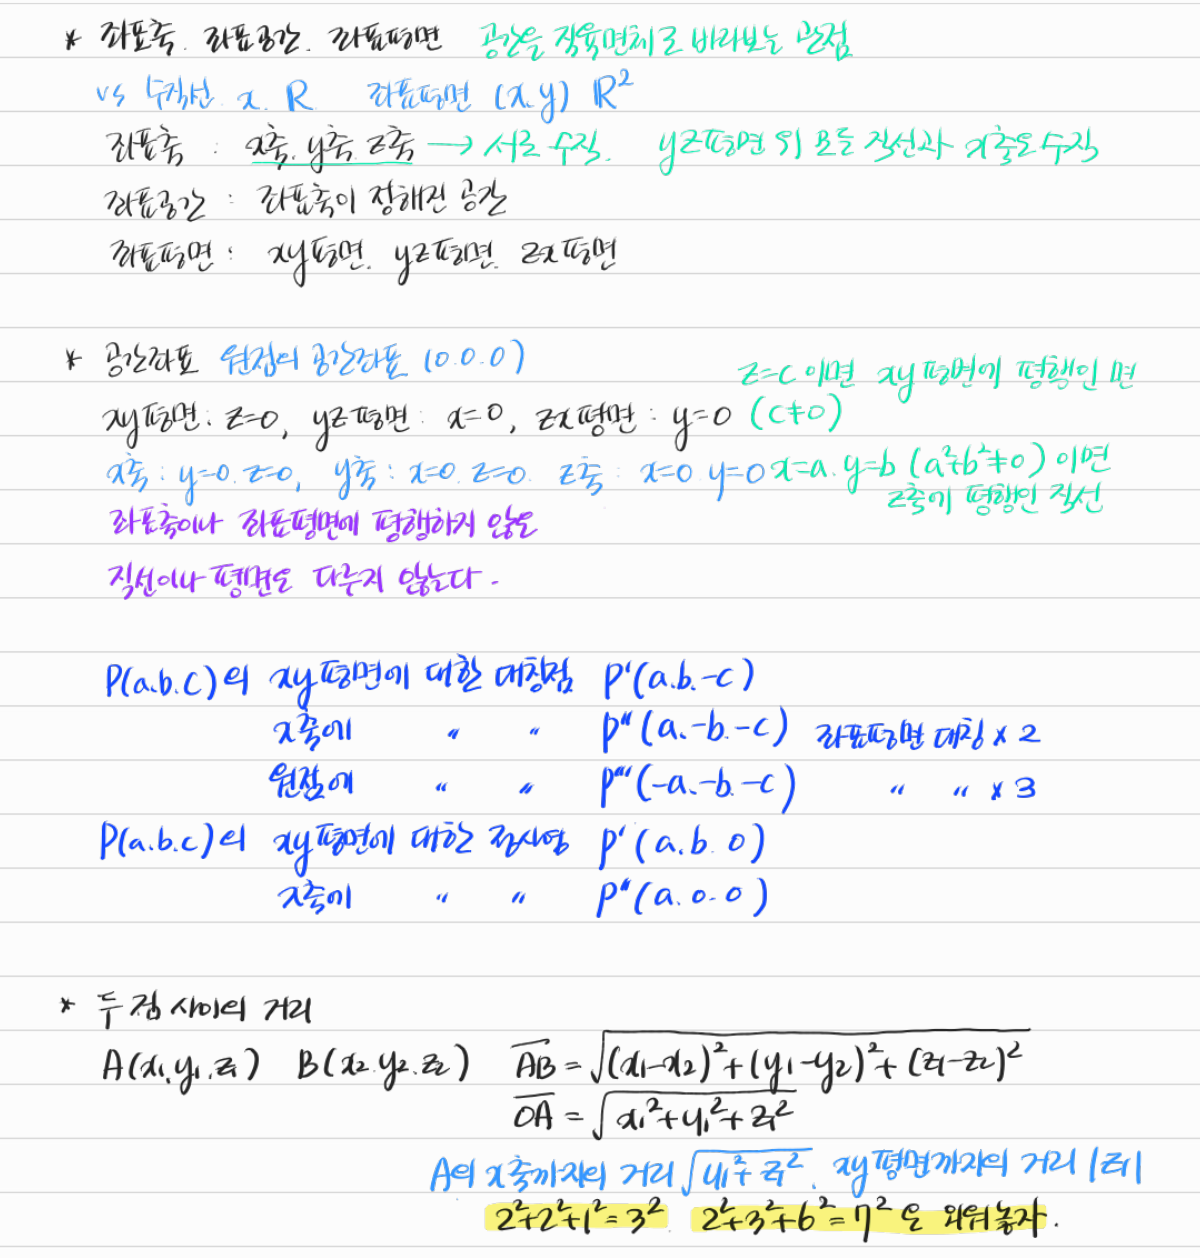 * 좌표축. 좌표공간. 좌표평면 공간을 직육면체로 바라보는 관점
vs 수직선. x. R. 좌표평면 (x.y) R²
좌표축 : x축. y축. z축 → 서로 수직. yz평면 위 모든 직선과 x축은 수직
좌표공간 : 좌표축이 정해진 공간
좌표평면 : xy평면. yz평면. zx평면
* 공간좌표 원점의 공간좌표 (0.0.0)
z=c 이면 xy평면에 평행인 면
xy평면 : z=0, yz평면 : x=0, zx평면 : y=0 (c≠0)
x축 : y=0. z=0, y축 : x=0. z=0. z축 : x=0 y=0 x=a. y=b (a²+b²≠0) 이면
z축에 평행인 직선
좌표축이나 좌표평면에 평행하지 않은
직선이나 평면은 다루지 않는다.
P(a.b.c)의 xy평면에 대한 대칭점 P'(a.b.-c)
x축에 〃 〃 P"(a.-b.-c) 좌표평면 대칭 × 2
원점에 〃 〃 P"'(-a.-b.-c) 〃 〃 × 3
P(a.b.c)의 xy평면에 대한 정사영 P'(a.b.0)
x축에 〃 〃 P"(a.0.0)
* 두 점 사이의 거리
A(x₁.y₁.z₁) B(x₂.y₂.z₂) A̅B̅ = √((x₁-x₂)²+(y₁-y₂)²+(z₁-z₂)²)
O̅A̅ = √(x₁²+y₁²+z₁²)
A의 x축까지의 거리 √(y₁²+z₁²). xy평면까지의 거리 |z₁|
2²+2²+1²=3². 2²+3²+6²=7² 은 외워놓자.